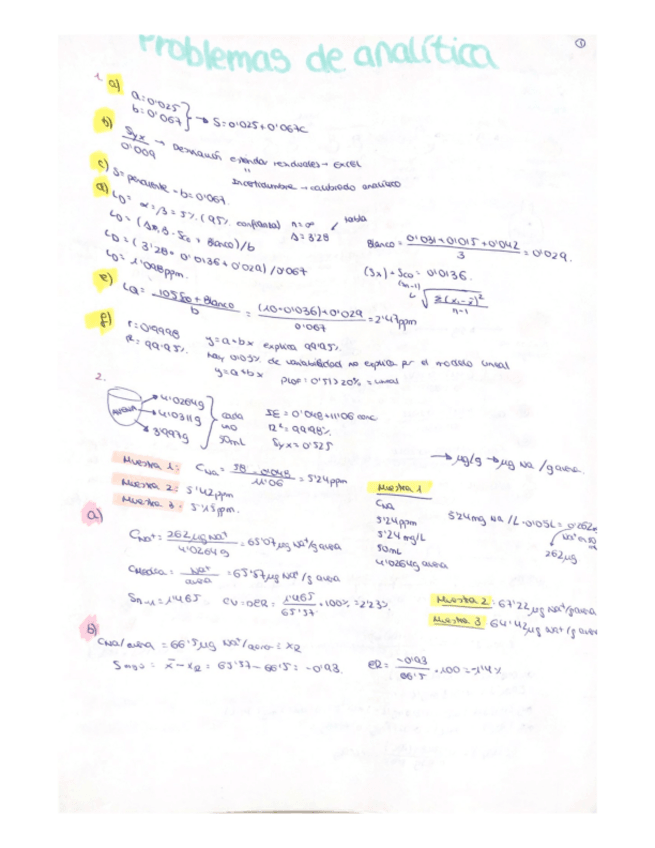 Problemas de analítica
1
1. a) a=0'025
b=0'067 → S=0'025+0'067C
b) Sy/x
0'009 → Desviación estándar residuales → EXCEL
Incertidumbre → calibrado analítico
c) S= pendiente = b=0'067.
d) LD= α=β=5%. (95% confianza) n=∞ tabla
Δ=3'28
LD= (Δα,β · Sco + Blanco)/b
LD= (3'28 · 0'0136+0'029)/0'067
LD= 1'098ppm.
Blanco = 0'031+0'015+0'042 / 3 = 0'029.
(Sx) = Sco = 0'0136.
(n-1)
n-1
e) LQ= 10Sco + Blanco / b = (10·0'0136)+0'029 / 0'067 = 2'47ppm
f) r=0'9998
R²= 99'95%. y=a+bx explica 99'95%
hay 0'05% de variabilidad no explica por el modelo lineal
y=a+bx PLOF: 0'51>20% = lineal
2.
AVENA
4'0264g
4'0311g
3'997g
cada uno 50mL
SE = 0'048+11'06 conc
R²= 99'98%
Sy/x=0'525
→ μg/g → μg Na /g avena.
Muestra 1: CNa = 58 - 0'048 / 11'06 = 5'24ppm
Muestra 2: 5'42ppm
Muestra 3: 5'15ppm.
Muestra 1
CNa
5'24ppm
5'24mg/L
50mL
4'0264g avena
5'24mg Na /L · 0'05L = 0'262m
262μg
a) CNa+ = 262μgNa+ / 4'0264g = 65'07μg Na+/g avena
CMedia = Na+ / avena = 65'57μg Na+ /g avena
Sn-1=1'465 CV=DER= 1'465 / 65'57 · 100% = 2'23%
Muestra 2: 67'22μg Na+/g avena
Muestra 3 64'42μg Na+/g aven
b) CNa/avena = 66'5μg Na+/avena = xR
= x̄-xR = 65'57-66'5 = -0'93.
ER= -0'93 / 66'5 · 100 = -1'4%